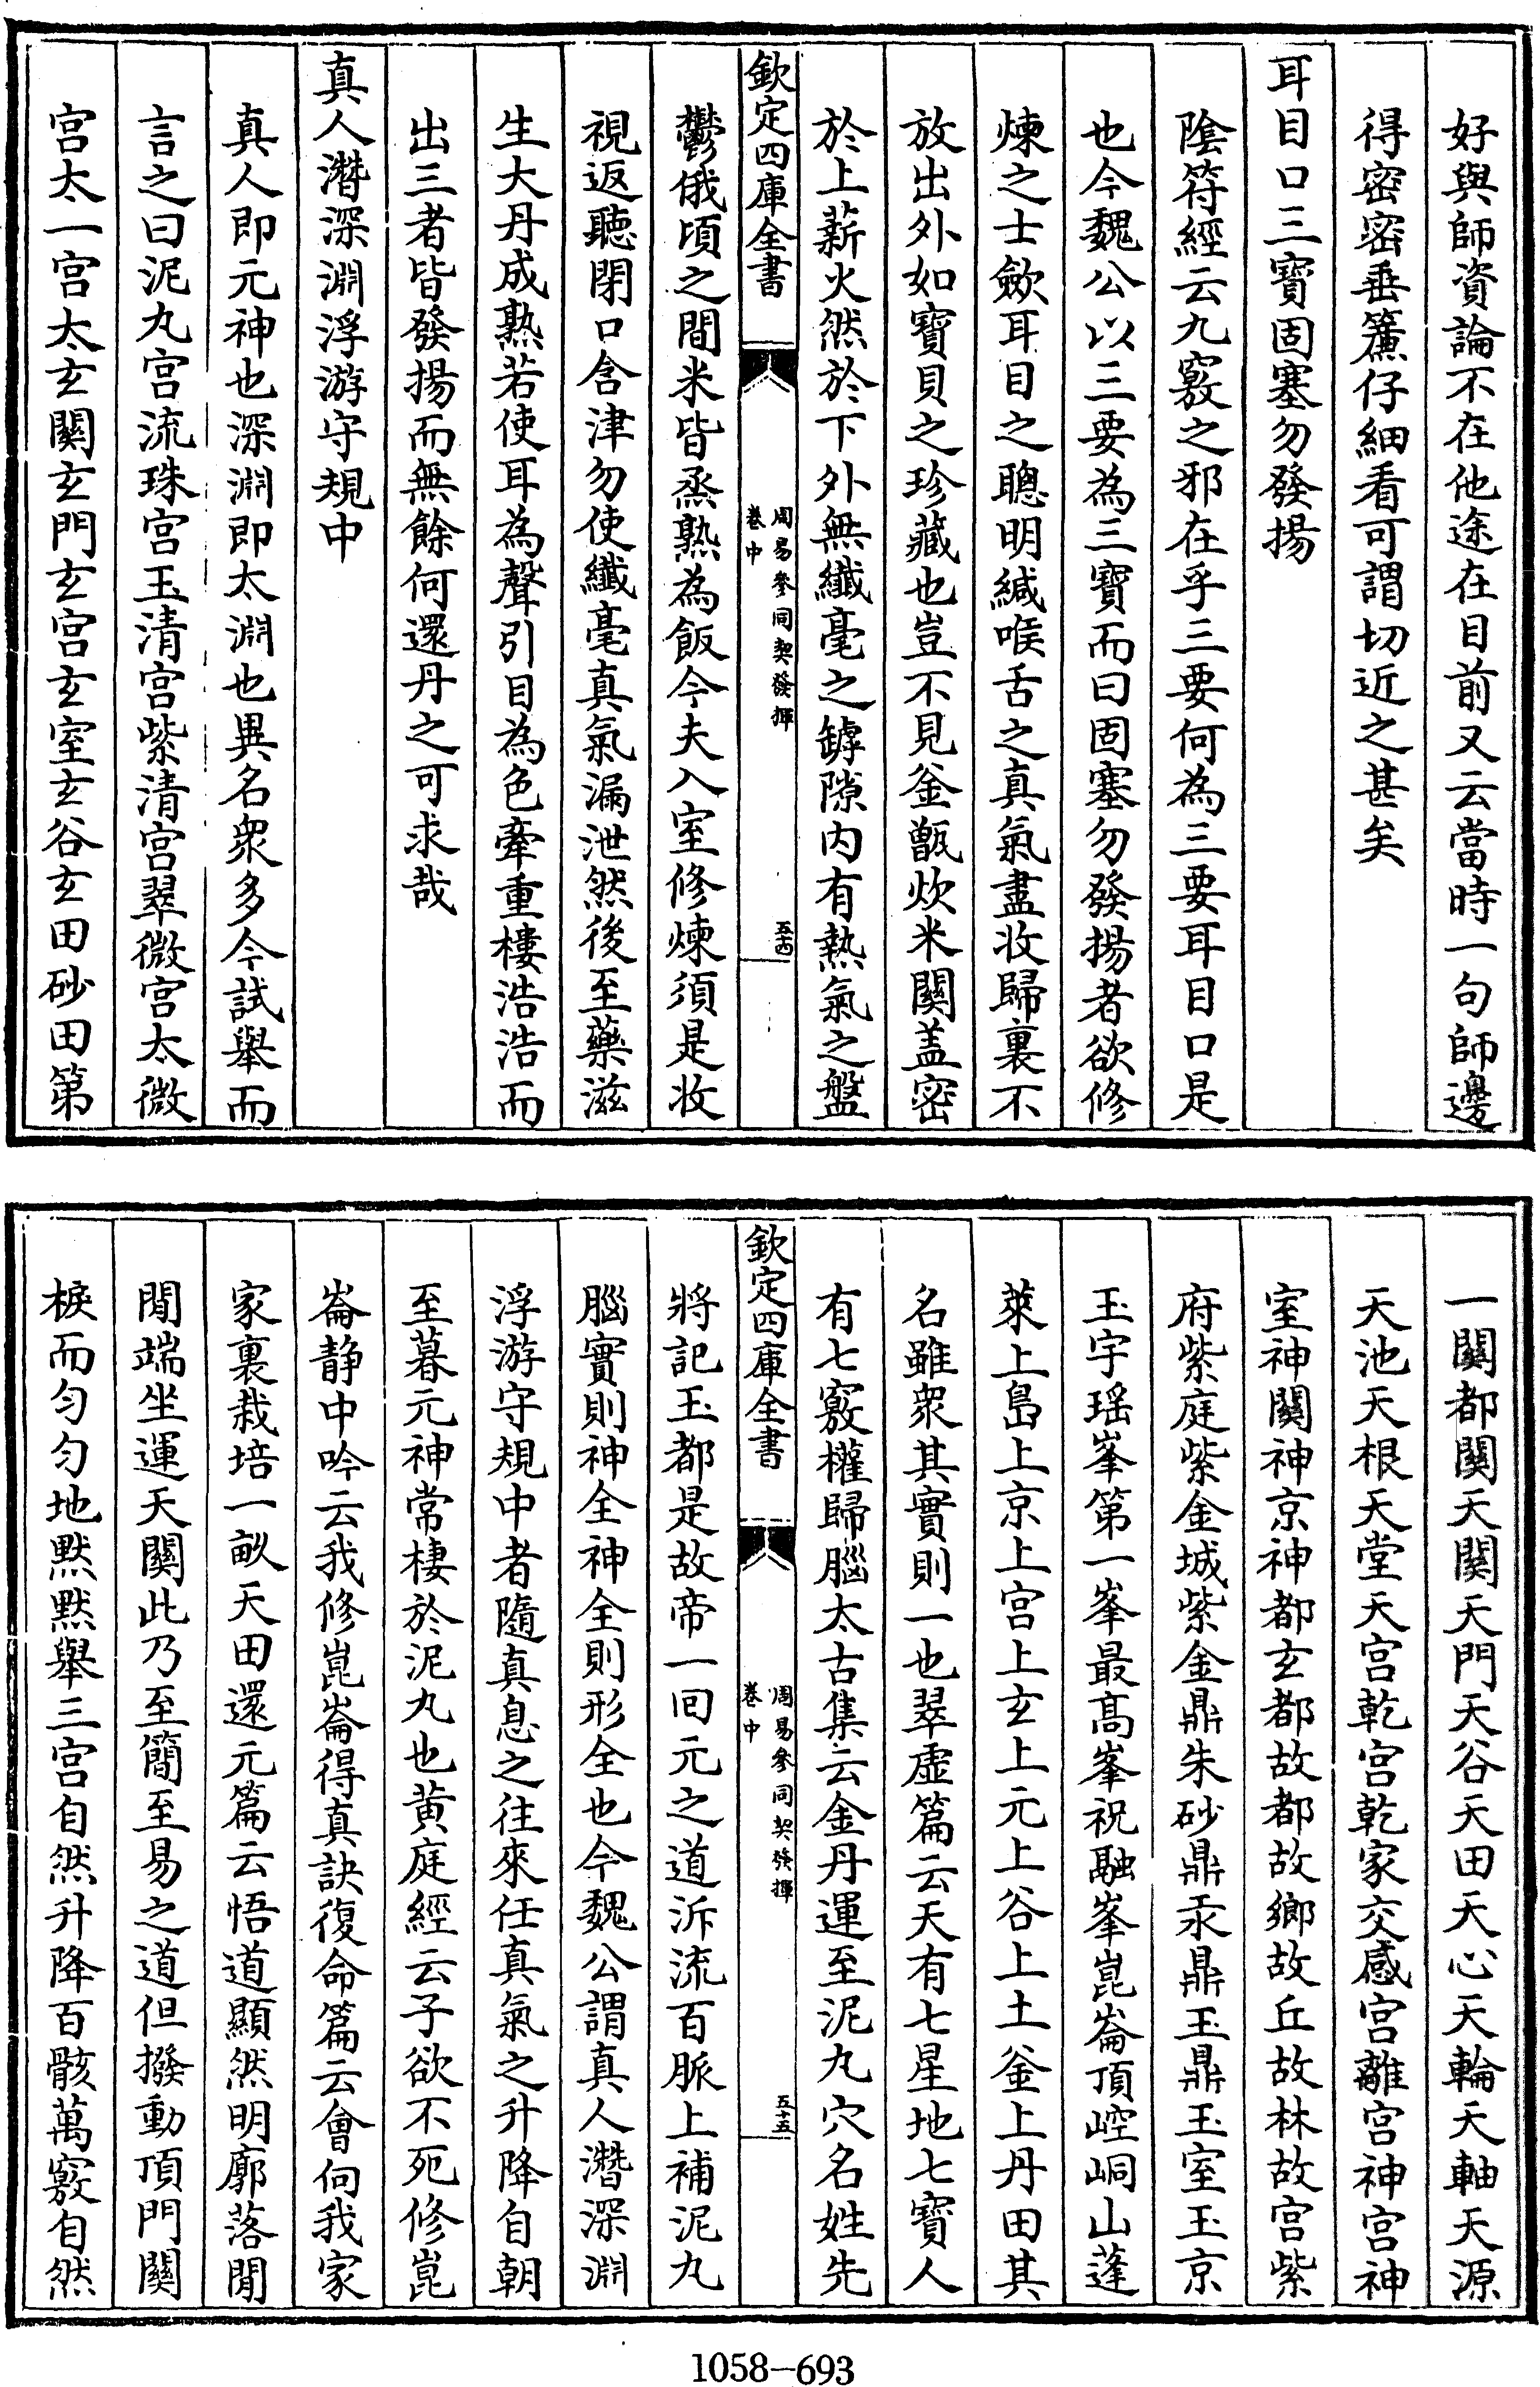 好與師資論不在他途在目前又云當時一句師邊
得密密垂簾仔細看可謂切近之甚矣
耳目口三寶固塞勿發揚
陰符經云九竅之邪在乎三要何為三要耳目口是
也今魏公以三要為三寶而曰固塞勿發揚者欲修
煉之士歛耳目之聰明緘喉舌之真氣盡收歸裏不
放出外如寶貝之珍藏也豈不見釜甑炊米闗盖密
於上薪火然於下外無纖毫之罅隙内有熱氣之盤
欽定四庫全書
周易參同契發揮
卷中
五十四
鬱俄頃之間米皆烝熟為飯今夫入室修煉須是收
視返聽閉口含津勿使纖毫真氣漏泄然後至藥滋
生大丹成熟若使耳為聲引目為色牽重樓浩浩而
出三者皆發揚而無餘何還丹之可求哉
真人潛深淵浮游守規中
真人即元神也深淵即太淵也異名衆多今試舉而
言之曰泥丸宫流珠宫玉清宫紫清宫翠微宫太微
宫太一宫太玄闗玄門玄宫玄室玄谷玄田砂田第
一闗都闗天闗天門天谷天田天心天輪天軸天源
天池天根天堂天宫乾宫乾家交感宫離宫神宫神
室神闗神京神都玄都故都故鄉故丘故林故宫紫
府紫庭紫金城紫金鼎朱砂鼎汞鼎玉鼎玉室玉京
玉宇瑶峯第一峯最髙峯祝融峯崑崙頂崆峒山蓬
萊上島上京上宫上玄上元上谷上土釜上丹田其
名雖衆其實則一也翠虚篇云天有七星地七寶人
有七竅權歸腦太古集云金丹運至泥丸穴名姓先
欽定四庫全書
周易參同契發揮
卷中
五十五
將記玉都是故帝一囘元之道泝流百脈上補泥丸
腦實則神全神全則形全也今魏公謂真人潛深淵
浮游守規中者隨真息之往來任真氣之升降自朝
至暮元神常棲於泥丸也黄庭經云子欲不死修崑
崙静中吟云我修崑崙得真訣復命篇云會向我家
家裏栽培一畝天田還元篇云悟道顯然明廓落閒
閒端坐運天闗此乃至簡至易之道但撥動頂門闗
棙而勻勻地默默舉三宫自然升降百骸萬竅自然
1058-693